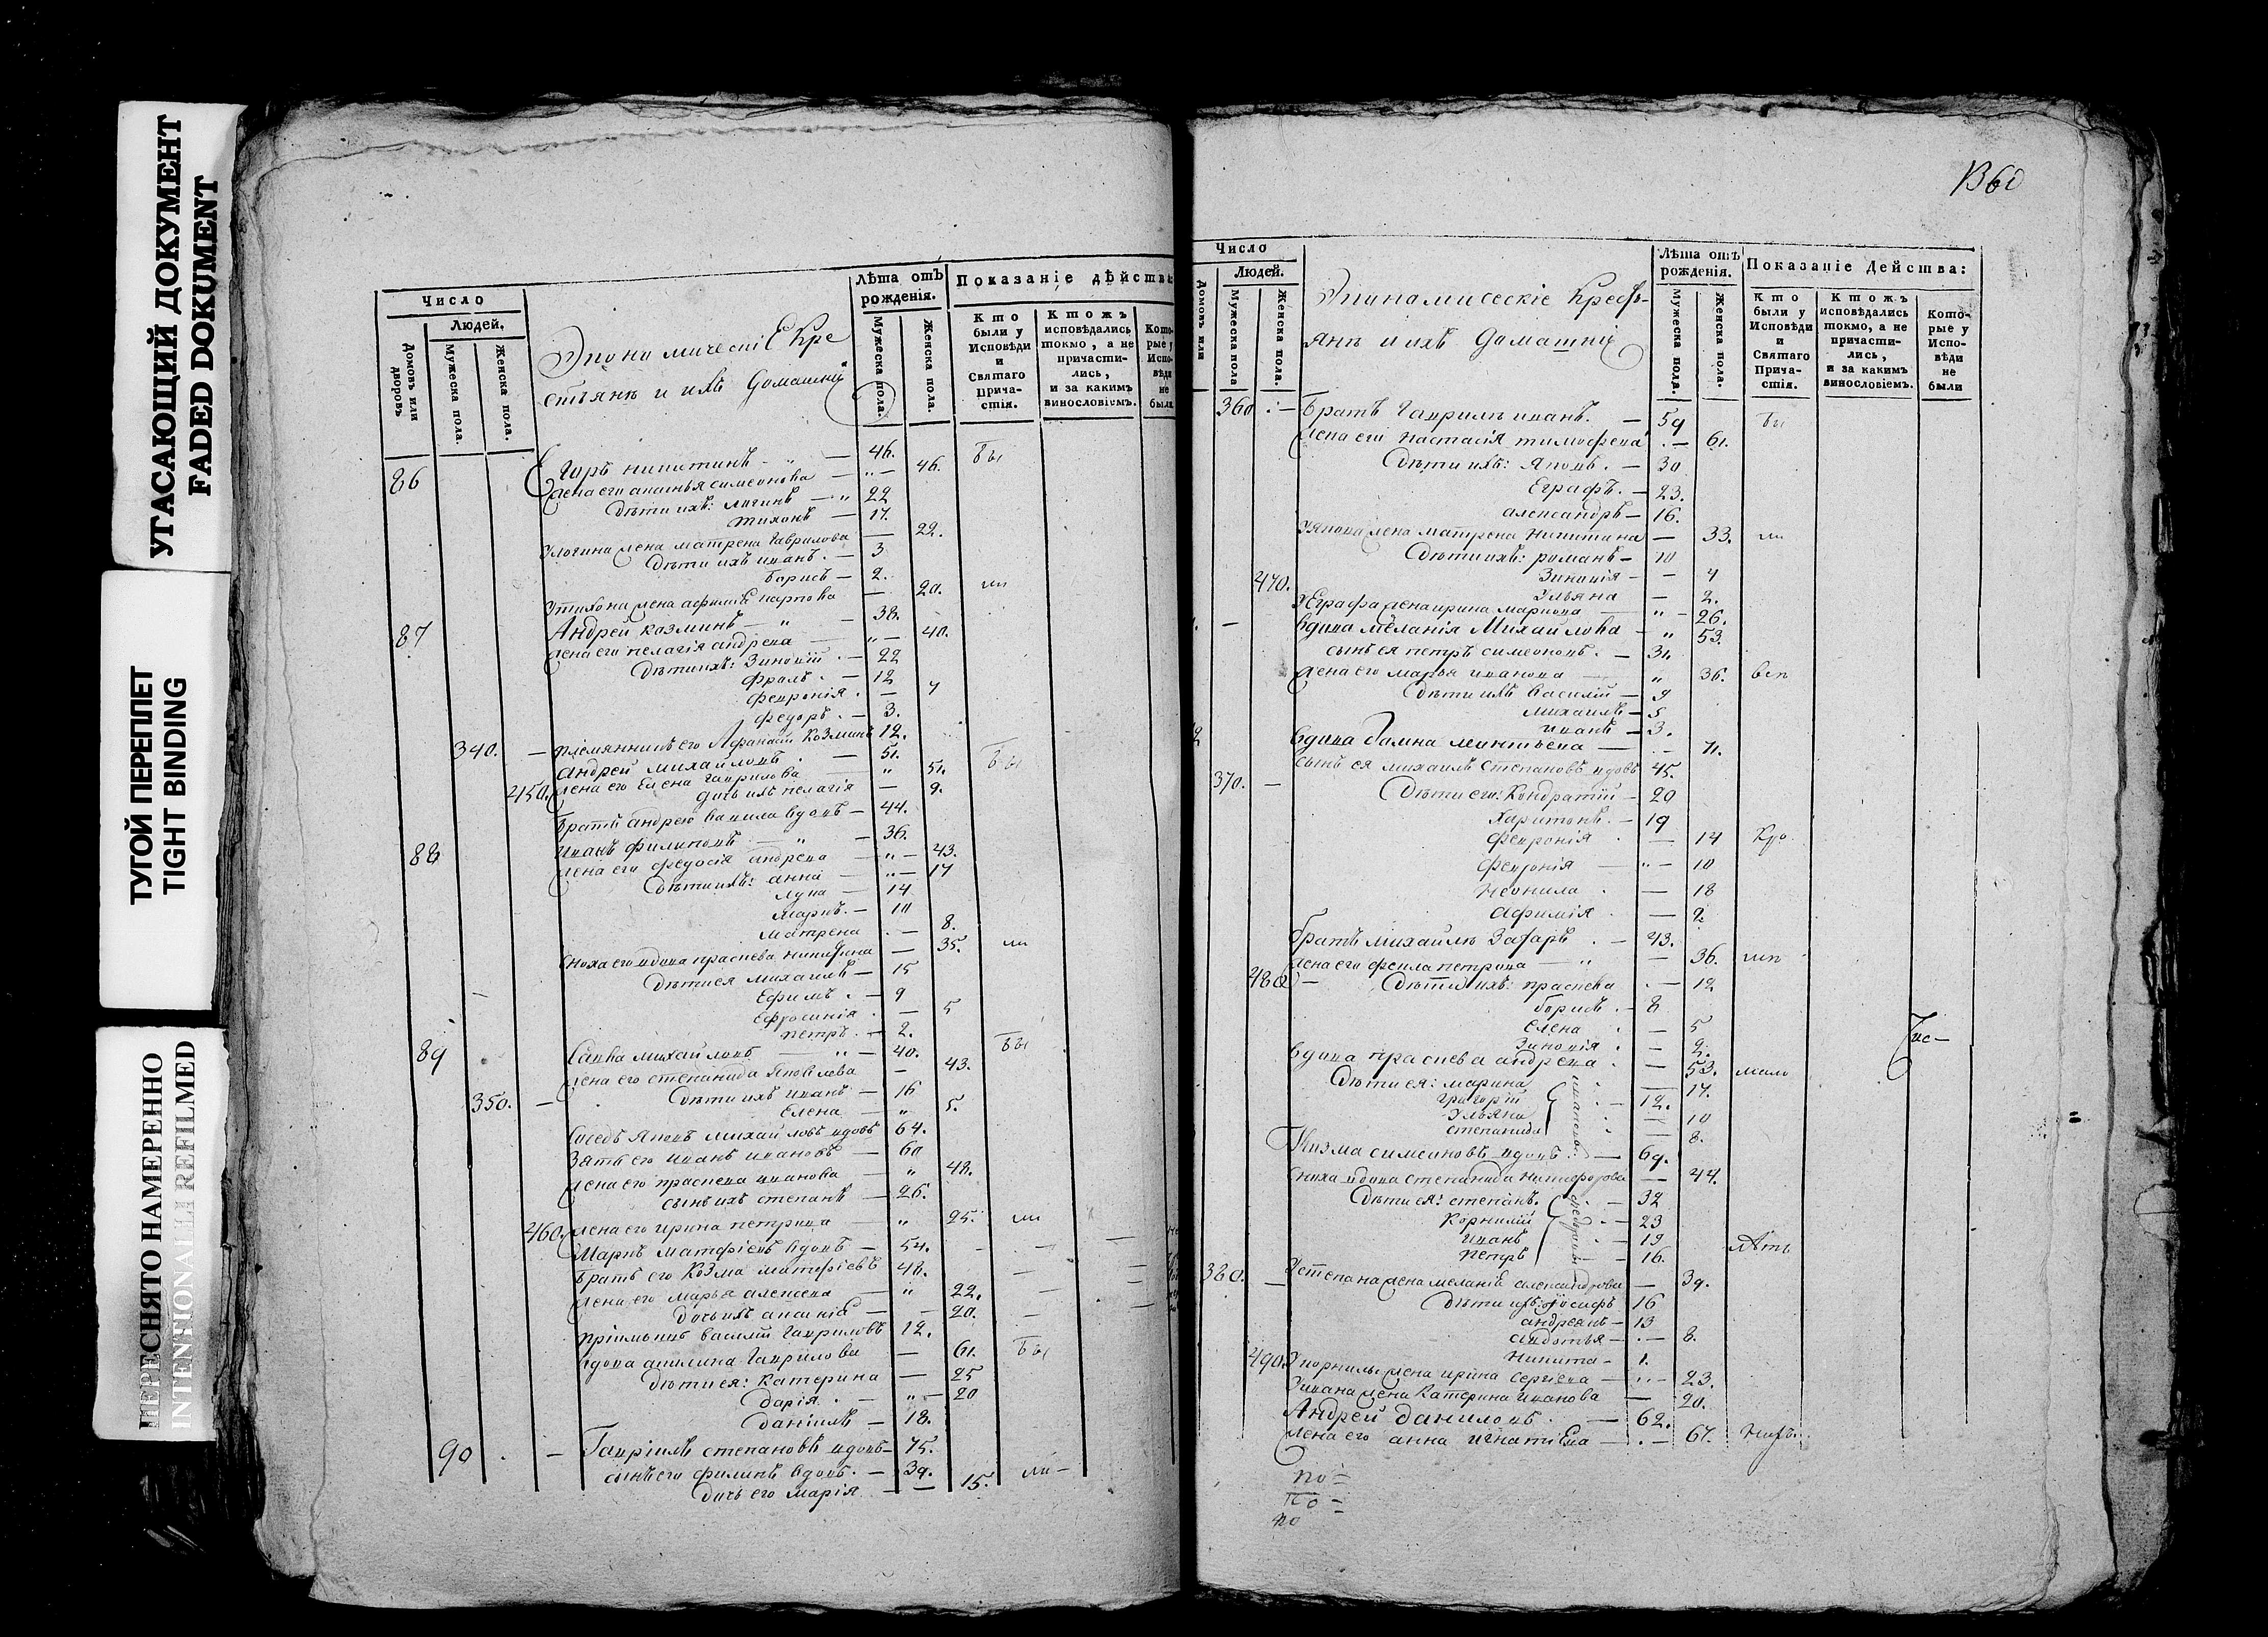 УГАСАЮЩИЙ ДОКУМЕНТ
FADED DOKUMENT
ТУГОЙ ПЕРЕПЛЕТ
TIGHT BINDING
ПЕРЕСНЯТО НАМЕРЕННО
INTENTIONALLI REFILMED
Число
Людей.
Домовъ или дворовъ
Мужеска пола.
Женска пола.
Экономическіе Кре
стьянъ и ихъ домашнiе
Лѣта отъ рожденія.
Мужеска пола.
Женска пола.
Показаніе дѣйств
Кто были у Исповѣди и Святаго Прича- стія.
Ктожъ исповѣдались токмо, а не причасти- лись, и за какимъ винословіемъ.
Кото- рые у Испо- вѣди не были
86 Егоръ никитинъ — 46. бы
жена его ананья симеонова — 46.
дѣти ихъ: логинъ — 22
тихонъ — 17.
У логина жена матрена гаврилова — 22.
дѣти ихъ иванъ — 3
борисъ — 2.
У тихона жена афимія карпова — 20. ли
87 Андрей козминъ — 38.
жена его пелагія андрева — 40.
дѣти ихъ: Зиновій — 22
фролъ — 12
февронія — 7
федоръ — 3.
340. — племянникъ его Афанасій Козминъ 12.
андрей михайловъ — 51. бы
жена его Елена гаврилова — 51.
450. дочь ихъ пелагія — 9.
братъ андрею вавила вдовъ — 44.
88 иванъ филиповъ — 36.
жена его федосія андрева — 43.
дѣти ихъ: анна — 17
лука — 14
маркъ — 10
матрена — 8.
сноха его вдова праскева никитина — 35. ли
дѣти ея михаилъ — 15
Ефимъ — 9
Ефросинія — 5
петръ — 2.
89 Савва михайловъ — 40. бы
жена его степанида Яковлева — 43.
350. — дѣти ихъ иванъ — 16
елена — 5.
Соседъ Яковъ михайловъ вдовъ 64.
Зять его иванъ ивановъ — 60
жена его праскева иванова — 48.
сынъ ихъ степанъ — 26.
460. жена его ирина петрова — 25. ли
Маркъ матфіевъ вдовъ — 54.
братъ его Козма матфіевъ 48.
жена его марья алексева — 22.
дочь ихъ — 20.
пріимышъ василій гавриловъ 12.
вдова акилина гаврилова — 61. бы
дѣти ея: катерина — 25
дарія — 20
даніилъ — 18.
90 — Гавріилъ степановъ вдовъ — 75.
сынъ его филипъ вдовъ — 39. ли
дочь его марія — 15.
1360
Число
Людей.
Домовъ или
Мужеска пола
Женска пола.
Экономическіе Кресть-
янъ и ихъ домашніе
Лѣта отъ рожденія.
Мужеска пола.
Женска пола.
Показаніе Действа:
Кто были у Исповѣди и Святаго Прича- стія.
Ктожъ исповѣдались токмо, а не причасти- лись, и за какимъ винословіемъ.
Кото- рые у Испо- вѣди не были
360 — братъ гаврилъ иванъ — 59 бы
жена его настасія тимофева — 61.
дѣти ихъ: Яковъ — 30
Еграфъ — 23.
александръ — 16.
У якова жена матрена никитина — 33. ли
дѣти ихъ: романъ — 10
Зиновія — 4
470. Ульяна — 2.
У Еграфа жена ирина маркова — 26.
вдова меланія Михайлова — 53.
сынъ ея петръ симеоновъ — 31.
жена его марья иванова — 36. всп
дѣти ихъ василій — 9
михаилъ — 5
иванъ — 3.
вдова домна леонтьева — 71.
сынъ ея михаилъ степановъ вдовъ 45.
370. — дѣти его: Кондратій — 20
Харитонъ — 19
февронія — 14
февронія — 10
неонила — 18
афимія — 2.
братъ михайлу Захаръ — 43.
жена его фекла петрова — 36. ли
480 — дѣти ихъ: праскева — 12
борисъ — 8
елена — 5
Зиновія — 2.
вдова праскева андрева — 53.
дѣти ея: марина — 17.
григорій — 12.
Ульяна — 10
степанида — 8.
Козма симеоновъ вдовъ — 69.
сноха вдова степанида никифорова — 44.
дѣти ея: степанъ — 32
Корнилій — 23
иванъ — 19
петръ — 16.
380. — У степана жена меланія александрова — 39.
дѣти ихъ: Іосифъ 16
андреанъ — 13
авдотья — 8.
никита — 1.
490. У корнилы жена ирина сергіева — 23.
У ивана жена Катерина иванова — 20.
Андрей даниловъ — 62.
жена его анна игнатіева — 67.
по
по
по